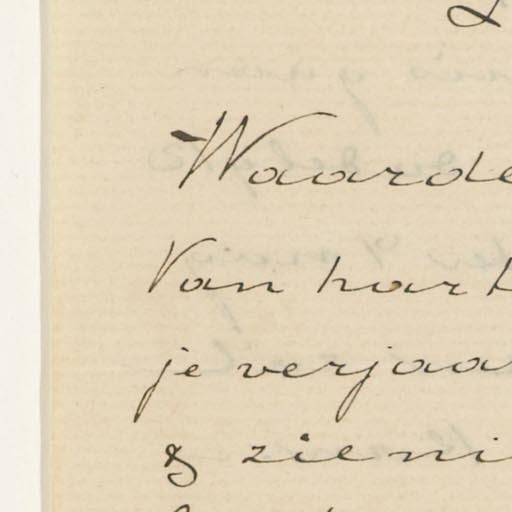 Waarde
Van hart
je verjaa
& zieni